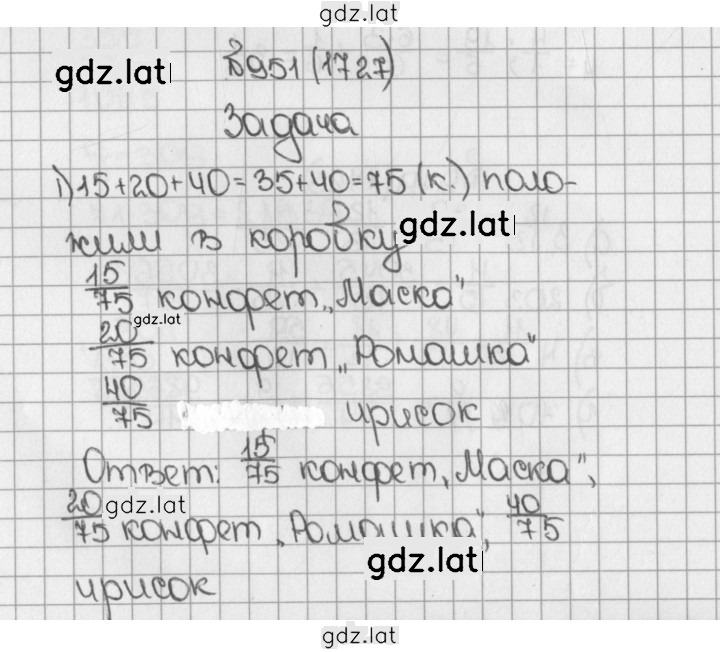 gdz.lat
gdz.lat
№951 (1727)
Задача
1) 15+20+40=35+40=75 (к.) поло-
gdz.lat
жили в коробку
15/75 конфет „Маска"
gdz.lat
20/75 конфет „Ромашка"
40/75 ирисок
Ответ: 15/75 конфет „Маска",
gdz.lat
20/75 конфет „Ромашка", 40/75
gdz.lat
ирисок
gdz.lat